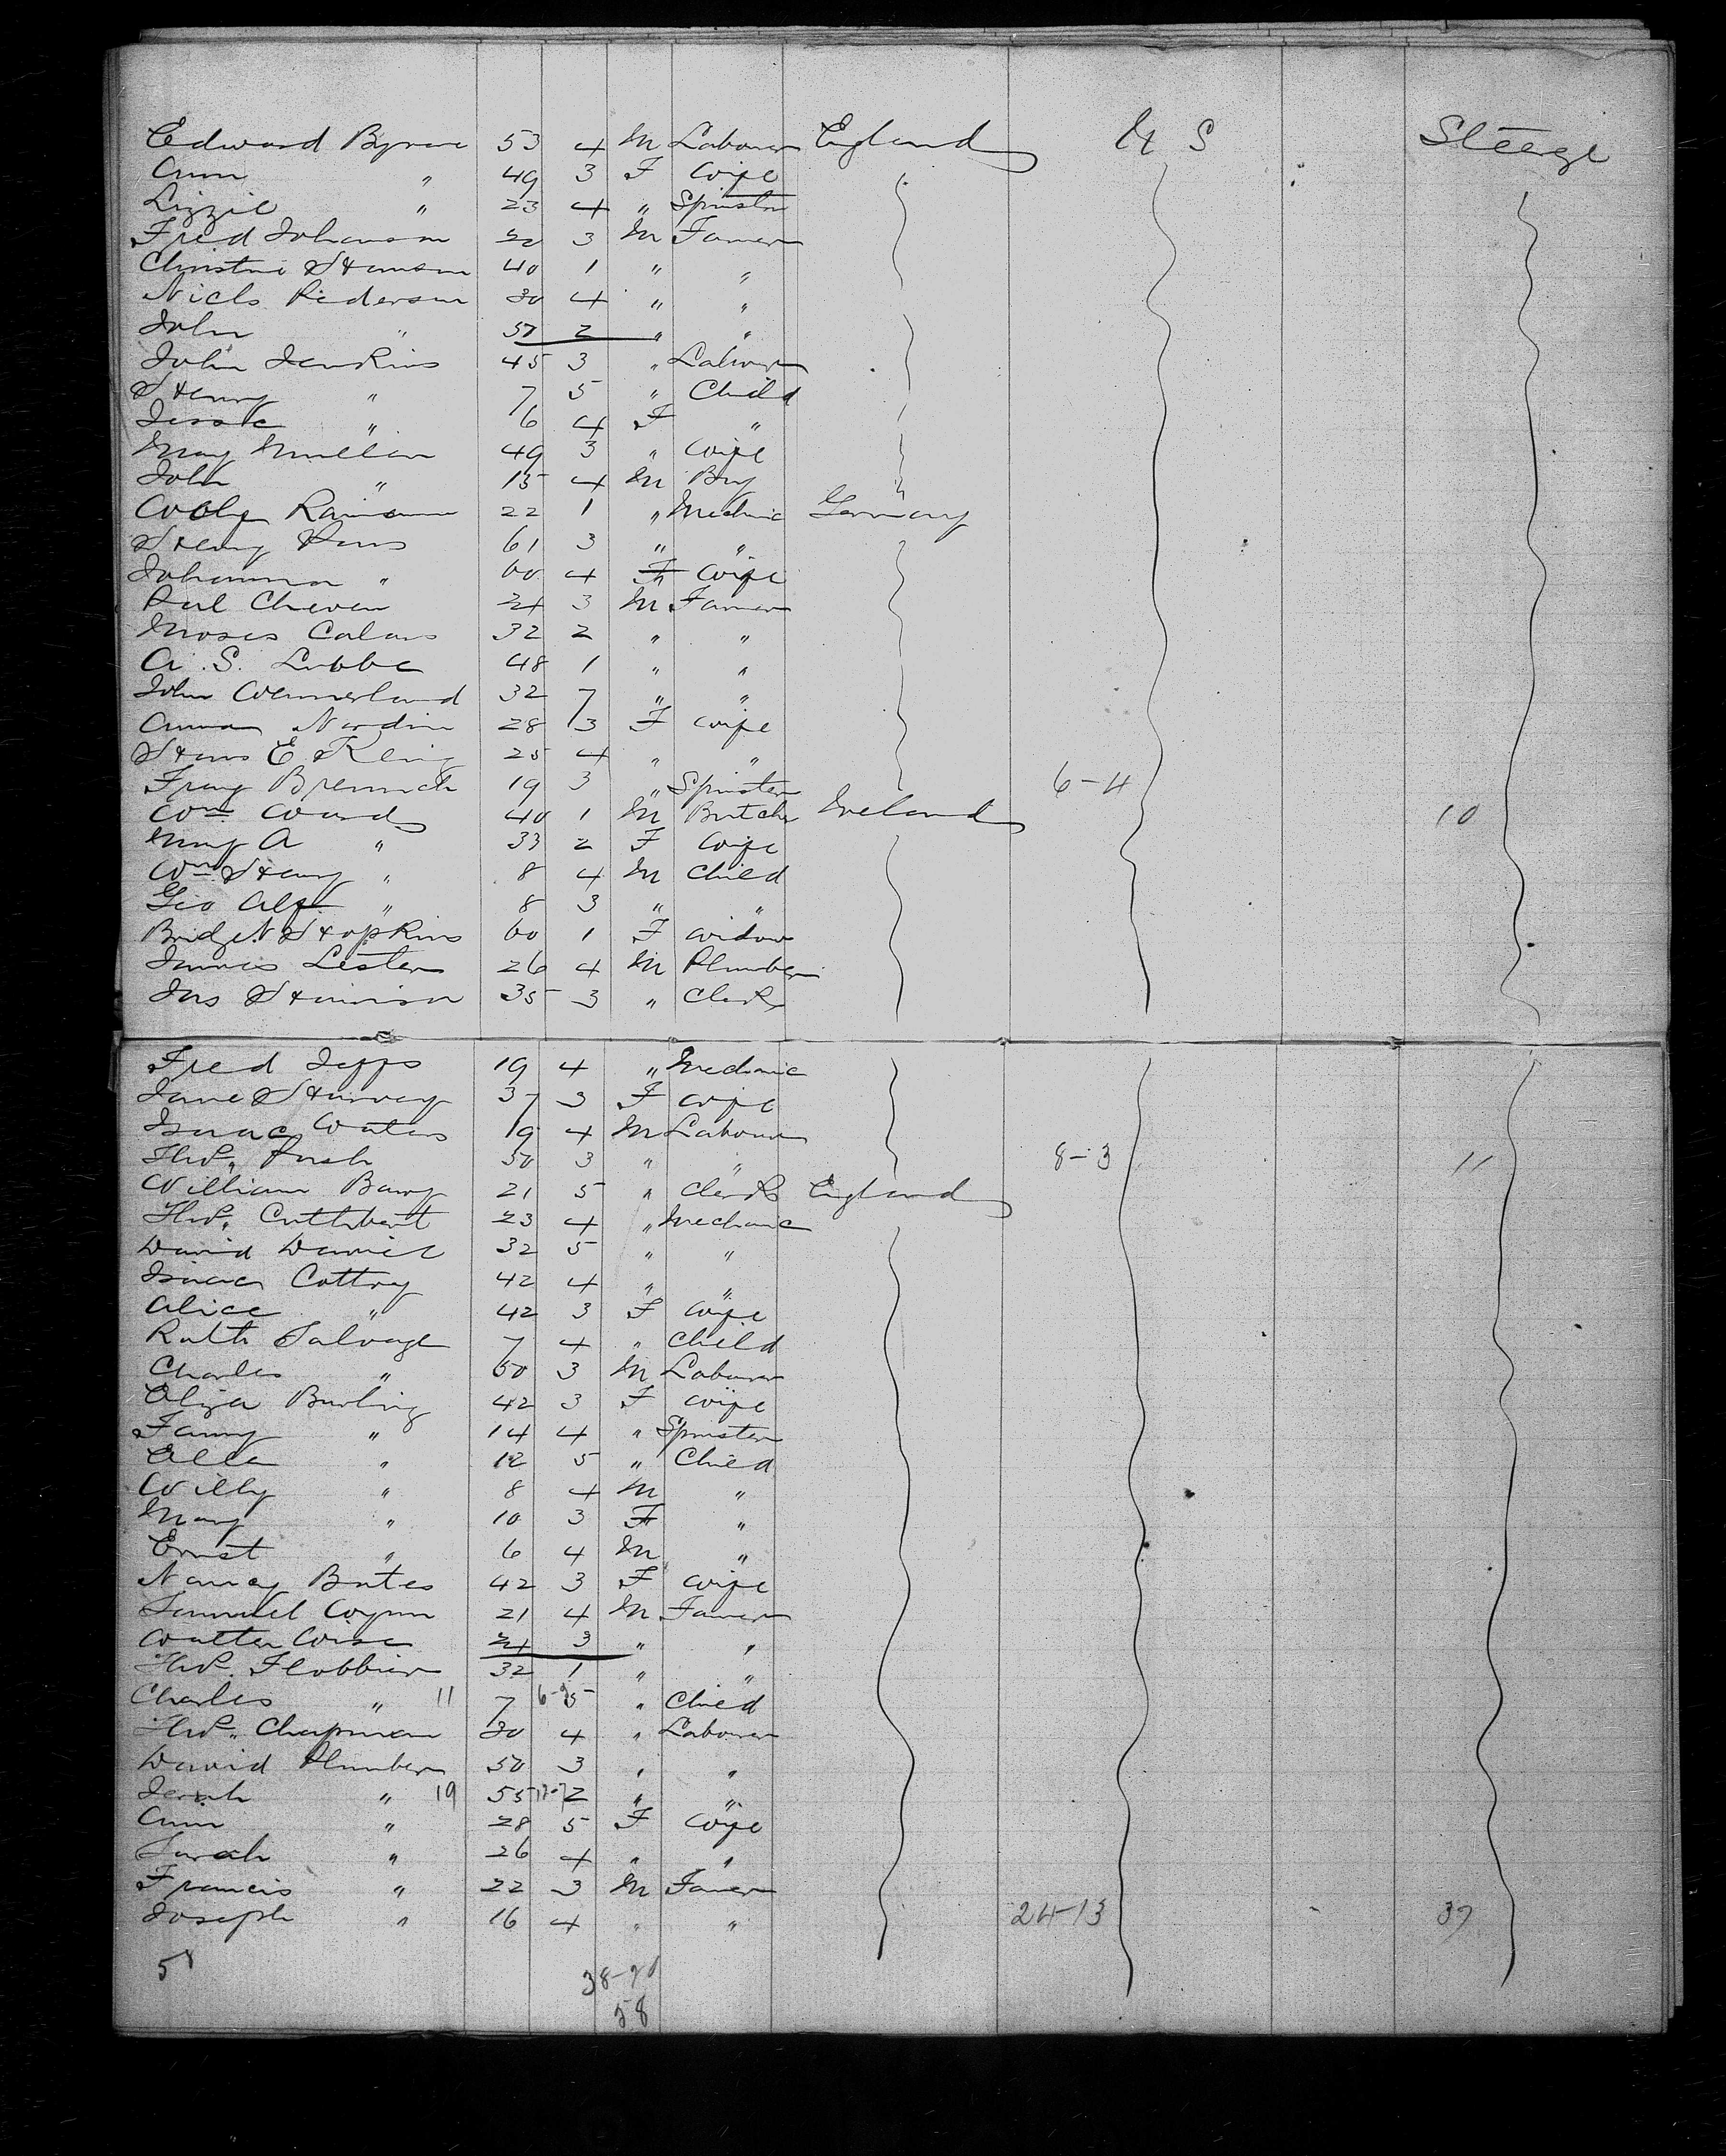 Edward Byrne 53 4 M Labourer England U S Steerage
Ann " 49 3 F Wife
Lizzie " 23 4 " Spinster
Fred Johanson 20 3 M Farmer
Christine Hanson 40 1 " "
Niels Pederson 30 4 " "
John " 37 2 " "
John Jenkins 45 3 " Labourer
Henry " 7 5 " Child
Jessie " 6 4 F "
Mary Mullin 49 3 " Wife
John " 15 4 M Boy
22 1 " Mechanic Germany
Henry 61 3 " "
Johanna " 60 4 F Wife
3 M Farmer
Moses 32 2 " "
A. S. Lubbe 48 1 " "
John Wennerlund 32 7 " "
Anna Nordin 28 3 F Wife
Hans E Kling 25 4 " "
19 3 " Spinster 6-4
Wm Ward 40 1 M Butcher Ireland 10
Mary A " 33 2 F Wife
Wm Henry " 8 4 M Child
Geo Alf " 8 3 " "
Bridget Hopkins 60 1 F Widow
James Lester 26 4 M Plumber
Jas Harrison 35 3 " Clerk
Fred Jepps 19 4 " Mechanic
Jane Harvey 37 3 F Wife
Isaac Waters 19 4 M Labourer
Thos. Rush 50 3 " " 8-3 11
William Barry 21 5 " Clerk England
Thos. Cuthbert 23 4 " Mechanic
David Daniel 32 5 " "
Isaac Cottrey 42 4 " "
Alice " 42 3 F Wife
Ruth Salvage 7 4 " Child
Charles " 60 3 M Labourer
Eliza Burling 42 3 F Wife
Fanny " 14 4 " Spinster
Ella " 12 5 " Child
Willy " 8 4 M "
Mary " 10 3 F "
Ernst " 6 4 M "
Nancy Bates 42 3 F Wife
Samuel Wynn 21 4 M Farmer
Walter Wise 21 3 " "
Thos. 32 1 " "
Charles " 11 7 5 " Child
Thos. Chapman 30 4 " Labourer
David Plumber 50 3 " "
" 19 55 2 " "
Ann " 28 5 F Wife
Sarah " 26 4 " "
Francis " 22 3 M Farmer
Joseph " 16 4 " " 24-13 37
58 38-20
58